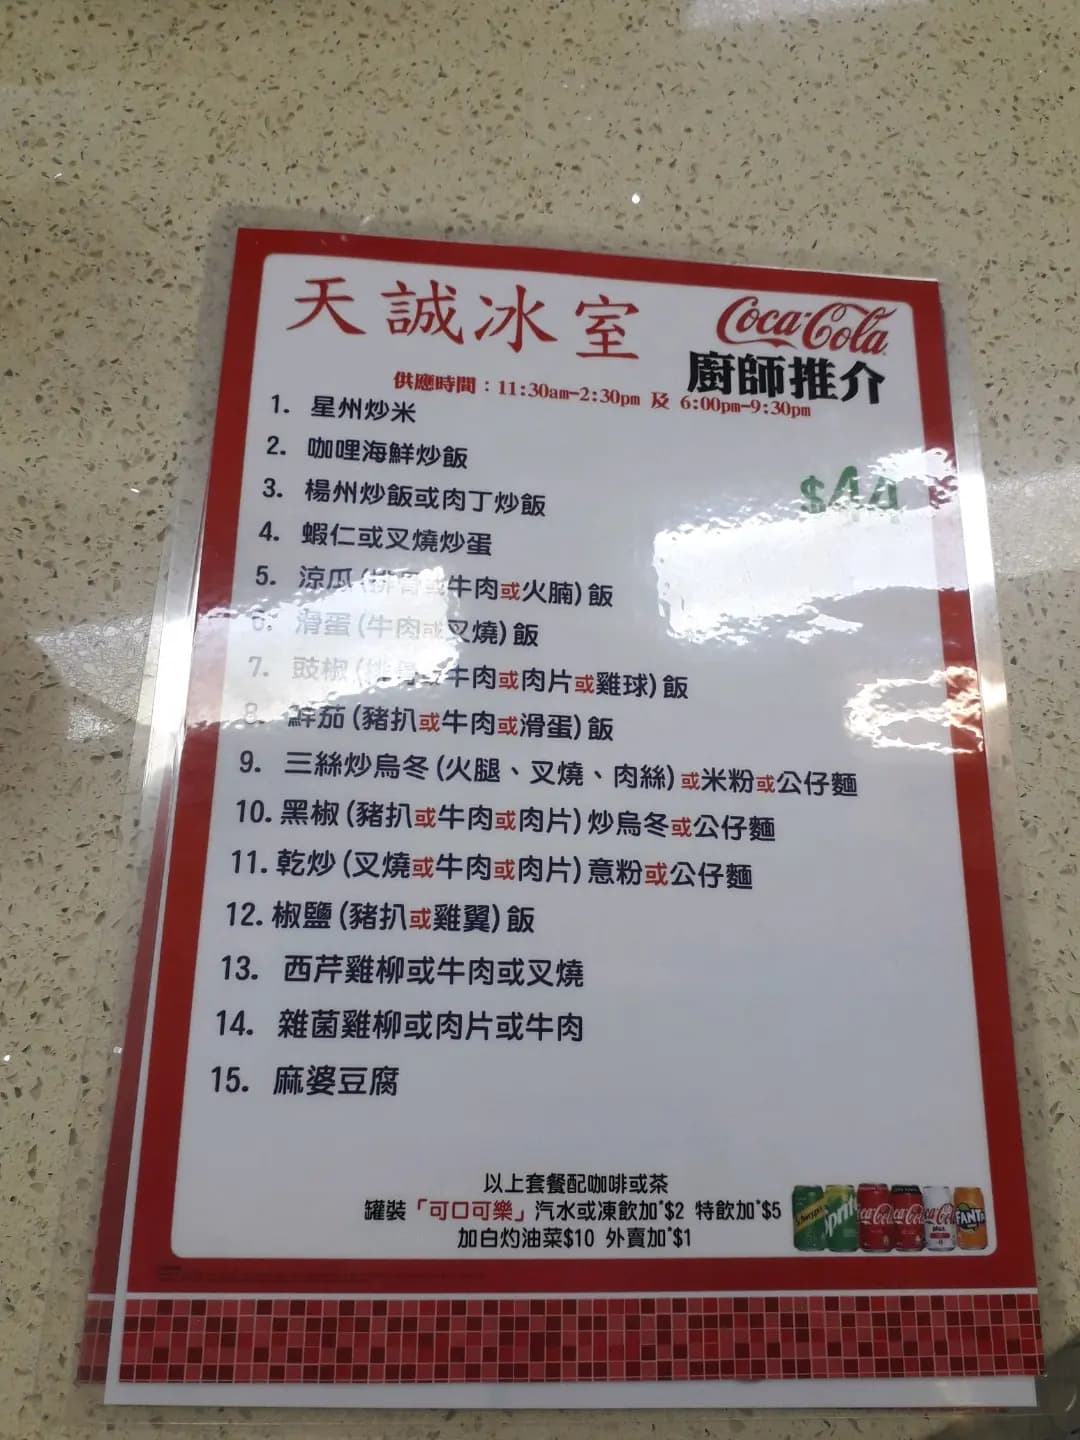 天誠冰室
Coca-Cola
廚師推介
供應時間：11:30am-2:30pm 及 6:00pm-9:30pm
$44
1. 星州炒米
2. 咖哩海鮮炒飯
3. 楊州炒飯或肉丁炒飯
4. 蝦仁或叉燒炒蛋
5. 涼瓜(排骨或牛肉或火腩)飯
6. 滑蛋(牛肉或叉燒)飯
7. 豉椒(排骨或牛肉或肉片或雞球)飯
8. 鮮茄(豬扒或牛肉或滑蛋)飯
9. 三絲炒烏冬(火腿、叉燒、肉絲)或米粉或公仔麵
10. 黑椒(豬扒或牛肉或肉片)炒烏冬或公仔麵
11. 乾炒(叉燒或牛肉或肉片)意粉或公仔麵
12. 椒鹽(豬扒或雞翼)飯
13. 西芹雞柳或牛肉或叉燒
14. 雜菌雞柳或肉片或牛肉
15. 麻婆豆腐
以上套餐配咖啡或茶
罐裝「可口可樂」汽水或凍飲加*$2 特飲加*$5
加白灼油菜$10 外賣加*$1